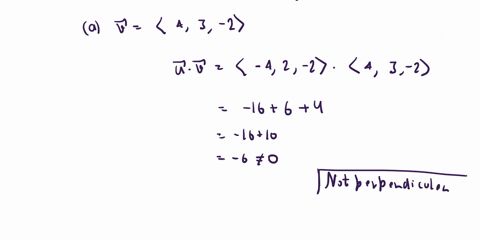 (a) v⃗ = ⟨ 4, 3, -2⟩
u⃗·v⃗ = ⟨ -4, 2, -2⟩ · ⟨ 4, 3, -2⟩
= -16 + 6 + 4
= -16+10
= -6 ≠ 0
Not perpendicular